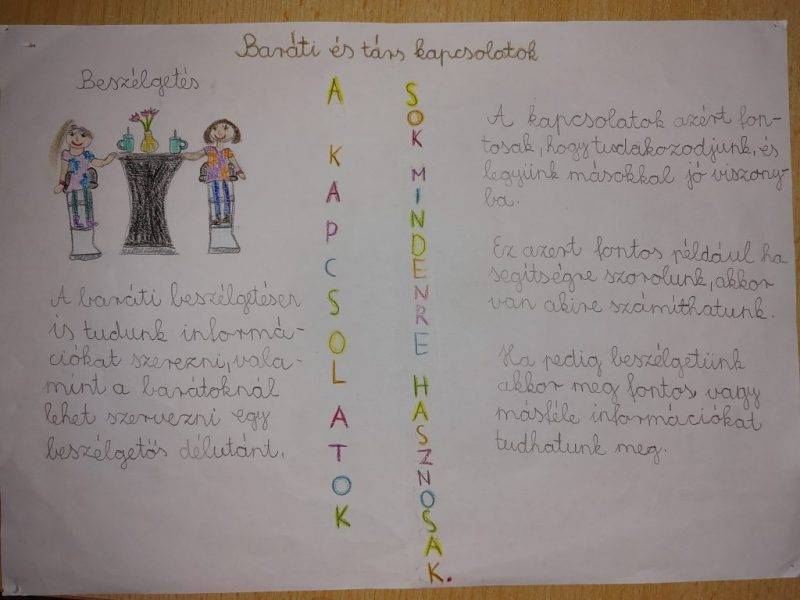 Baráti és társ kapcsolatok
Beszélgetés
A baráti beszélgetésen
is tudunk informá-
ciókat szerezni, vala-
mint a barátoknál
lehet szervezni egy
beszélgetős délutánt.
A KAPCSOLATOK
SOK MINDENRE HASZNOSAK.
A kapcsolatok azért fon-
tosak, hogy tudakozodjunk, és
legyünk másokkal jó viszony-
ba.
Ez azert fontos például ha
segitségre szorolunk, akkor
van akire számíthatunk.
Ha pedig beszélgetünk
akkor meg fontos, vagy
másféle információkat
tudhatunk meg.